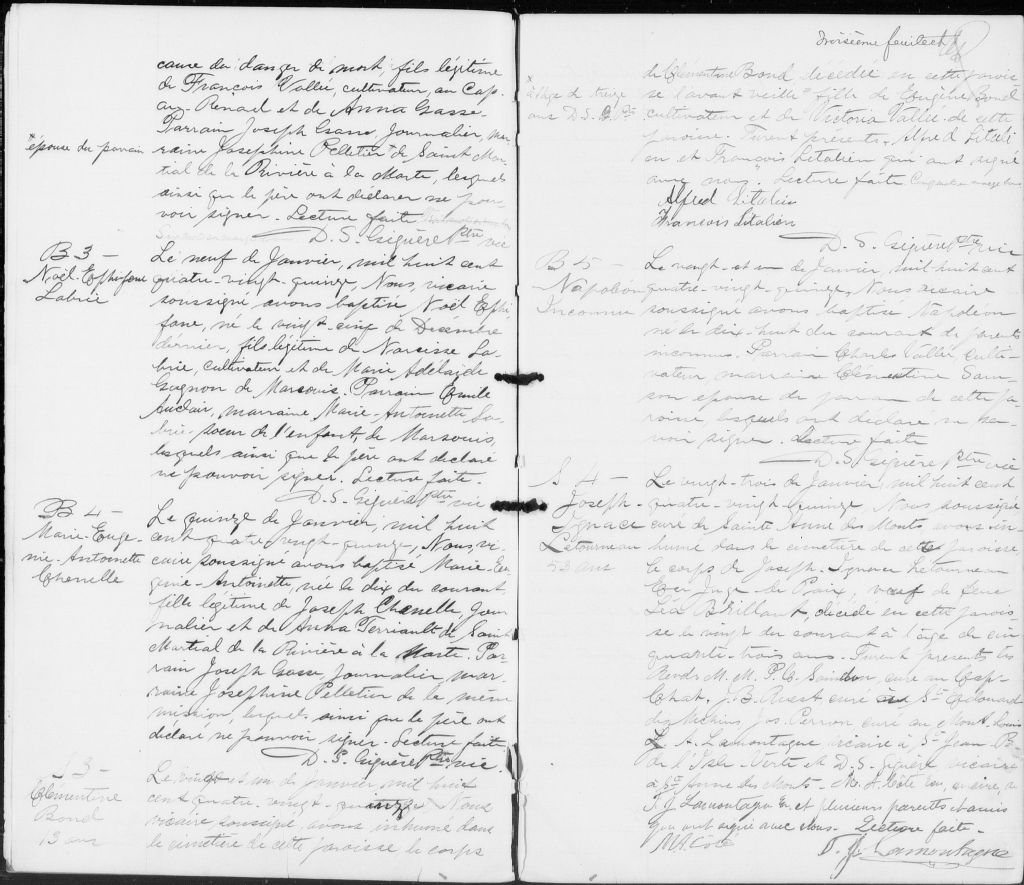 cause du danger de mort, fils légitime
de François Vallée, cultivateur, au Cap-
aux-Renard et de Anna Gasse.
Parrain Joseph Gasse, Journalier, mar-
× épouse du parrain
raine Josephine Pelletier × de Saint Mar-
tial de la Rivière à la Marte, lesquels
ainsi que le père ont déclarer ne pou-
voir signer. Lecture faite
D. S. Giguère Ptre vic
B 3 —
Noël-Ephifane
Labrie
Le neuf de Janvier, mil huit cent
quatre-vingt-quinze, Nous, vicaire
soussigné avons baptisé Noël Ephi-
fane, né le vingt-cinq de Decembre
dernier, fils légitime de Narcisse La-
brie, cultivateur et de Marie Adelaide
Gagnon de Marsouis. Parrain Emile
Auclair, marraine Marie-Antoinette La-
brie soeur de l'enfant, de Marsouis,
lesquels ainsi que le père ont declaré
ne pouvoir signer. Lecture faite.
D. S. Giguère Ptre vic
B 4 —
Marie-Euge-
nie-Antoinette
Chenelle
Le quinze de Janvier, mil huit
cent quatre-vingt-quinze, Nous, vi-
caire soussigné avons baptisé Marie-Eu-
genie-Antoinette, née le dix du courant,
fille légitime de Joseph Chenelle, Jour-
nalier et de Anna Terriault de Saint
Martial de la Rivière à la Marte. Par-
rain Joseph Gasse Journalier, mar-
raine Josephine Pelletier de la même
mission, lesquels ainsi que le père ont
déclaré ne pouvoir signer. Lecture faite
D. S. Giguère Ptre vic.
S 3 —
Clementine
Bond
13 ans
Le vingt et un de janvier, mil huit
cent quatre-vingt-quinze Nous
vicaire soussigné avons inhumé dans
le cimetière de cette paroisse le corps
troisième feuillet
de Clémentine Bond décédée en cette paroisse
× à l'âge de treize
ans D. S. G. Ptre
se l'avant veille × fille de Eugène Bond
cultivateur et de Victoria Vallée de cette
paroisse. Furent présents, Alfred Litali-
en et François Litalien qui ont signé
avec nous. Lecture faite
Alfred Litalien
Francois Litalien
D. S. Giguère Ptre vic
B 5 —
Napoléon
Inconnu
Le vingt-et-un de Janvier, mil-huit-cent
quatre-vingt-quinze, Nous vicaire
soussigné avons baptisé Napoléon
né le dix-huit du courant de parents
inconnus. Parrain Charles Vallée Culti-
vateur, marraine Clémentine Sam-
son épouse du parrain de cette pa-
roisse, lesquels ont déclaré ne sa-
voir signer. Lecture faite
D. S. Giguère Ptre vic
S 4 —
Joseph-
Ignace
Létourneau
53 ans
Le vingt-trois de Janvier, mil huit cent
quatre-vingt-quinze Nous, soussigné
curé de Sainte Anne des Monts avons in-
humé dans le cimetière de cette paroisse
le corps de Joseph-Ignace Letourneau
Ecr Juge de Paix, veuf de feue
Brillant, décédé en cette parois-
se le vingt du courant à l'âge de cin-
quante-trois ans. Furent présents les
Revds M. M. P. C. Saindon, curé au Cap-
Chat, J. B. Ruest curé St Edouard
des Méchins, Jos. Perron curé au Mont-Louis
L. A. Lamontagne vicaire à St Jean-B.
de l'Isle-Verte et D. S. Giguère vicaire
à Ste Anne des Monts. M. A. Côté
T. J. Lamontagne Ecr. et plusieurs parents et amis
qui ont signé avec Nous. Lecture faite.
M A Coté
T. J. Lamontagne